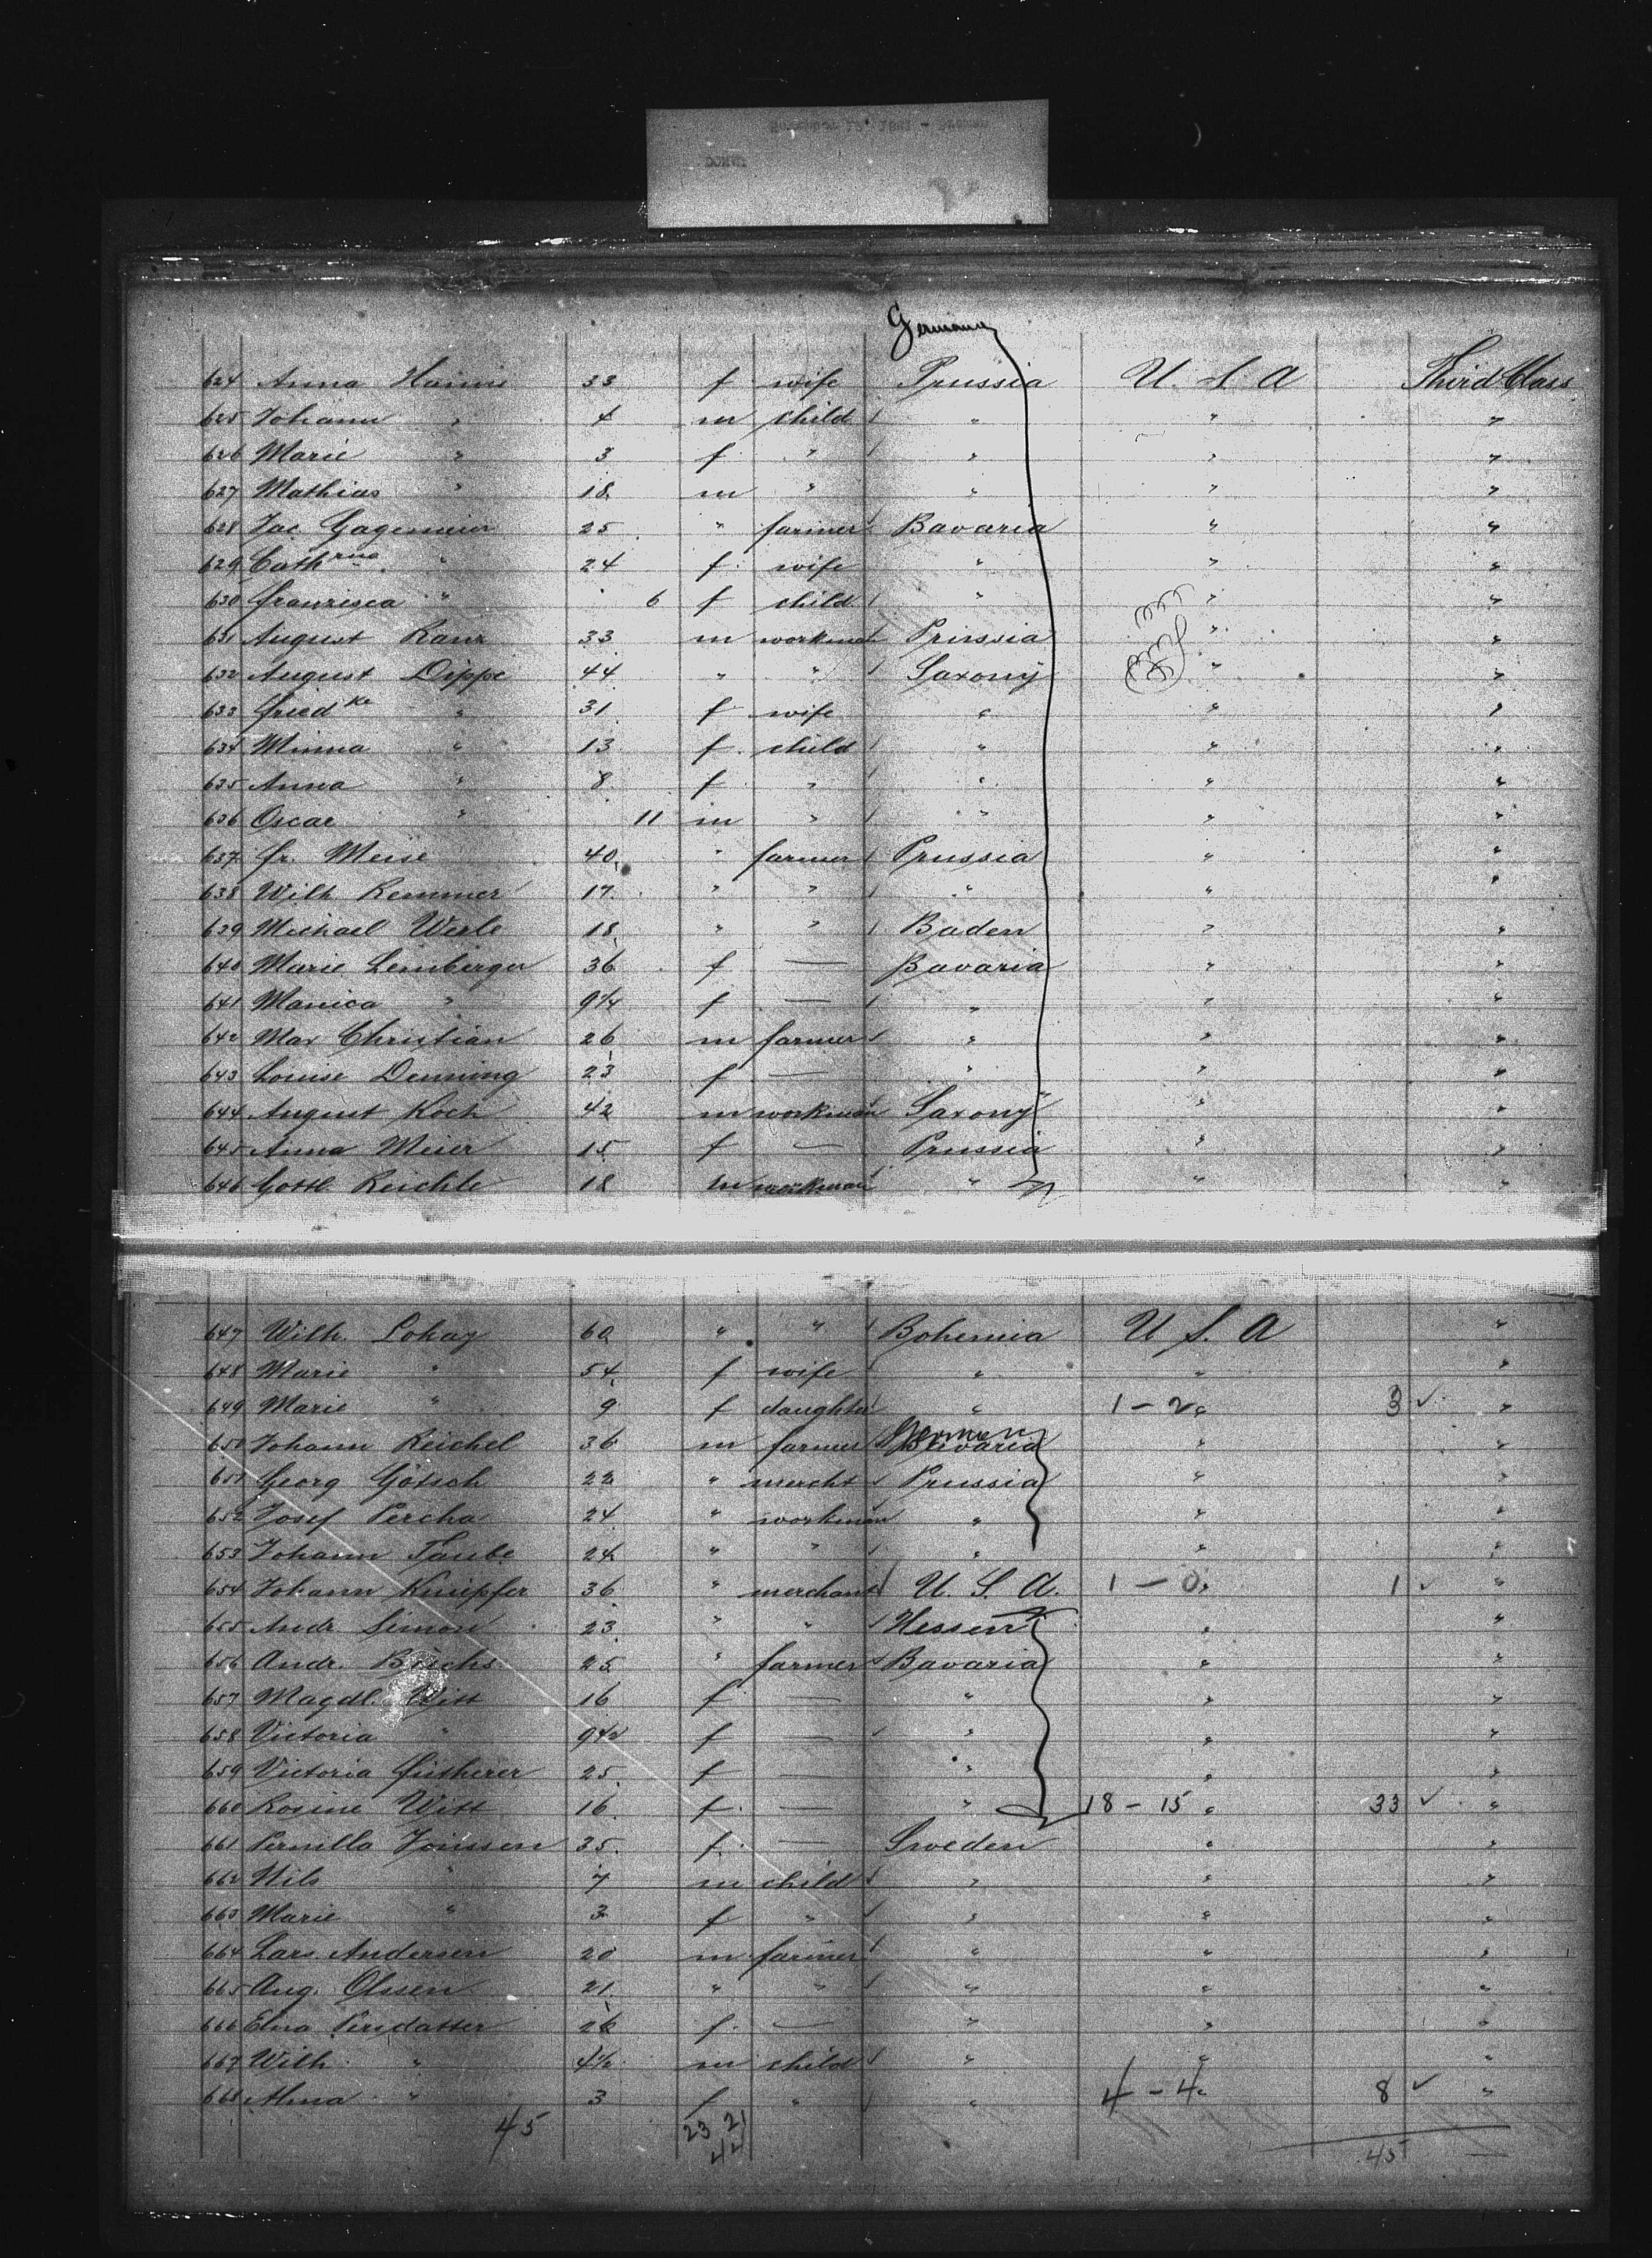 Germany
624 Anna Hainis 33 f wife Prussia U. S A Third Class
625 Johann " 4 m child " " "
626 Marie " 3 f " " " "
627 Mathias " 18 m " " " "
628 Jac. Gagemeier 25 " farmer Bavaria " "
629 Cathrina " 24 f wife " " "
630 Franzisca " 6 f child " " "
631 August Ranz 33 m workman Prussia " "
632 August Dippe 44 " " Saxony " "
633 Friedke " 31 f wife " " "
634 Minna " 13 f child " " "
635 Anna " 8 f " " " "
636 Oscar " 11 m " " " "
637 Fr. Meise 40 " farmer Prussia " "
638 Wilh. Remmer 17 " " " " "
639 Michael Werle 18 " " Baden " "
640 Marie Lemberger 36 f — Bavaria " "
641 Monica " 9 1/4 f — " " "
642 Max Christian 26 m farmer " " "
643 Louise Denning 23 f — " " "
644 August Koch 42 m workman Saxony " "
645 Anna Meier 15 f — Prussia " "
646 Gottl. Reichle 18 m workman " " "
647 Wilh. Lohay 60 " " Bohemia U S. A "
648 Marie " 54 f wife " " "
649 Marie " 9 f daughter " 1 - 2 " 3 ✓ "
650 Johann Reichel 36 m farmer Germany Bavaria " "
651 Georg Götsch 22 " mercht Prussia " "
652 Josef Percha 24 " workman " " "
653 Johann Taube 24 " " " " "
654 Johann Kniepfer 36 " merchant U. S. A. 1 - 0 " 1 ✓ "
655 Andr. Simon 23 " " Hessen " "
656 Andr. 25 " farmer Bavaria " "
657 Magdl. Witt 16 f — " " "
658 Victoria " 9 1/2 f — " " "
659 Victoria Fütherer 25 f — " " "
660 Rosine Witt 16 f — " 18 - 15 " 33 ✓ "
661 Pernilla Jönssen 35 f — Sweden " "
662 Nils " 7 m child " " "
663 Marie " 3 f " " " "
664 Lars Andersen 20 m farmer " " "
665 Aug. Olssen 21 " " " " "
666 Elna Persdatter 26 f — " " "
667 Wilh. " 4 1/2 m child " " "
668 Alma " 3 f " " 4 - 4 " 8 ✓ "
45 23 21 45
44